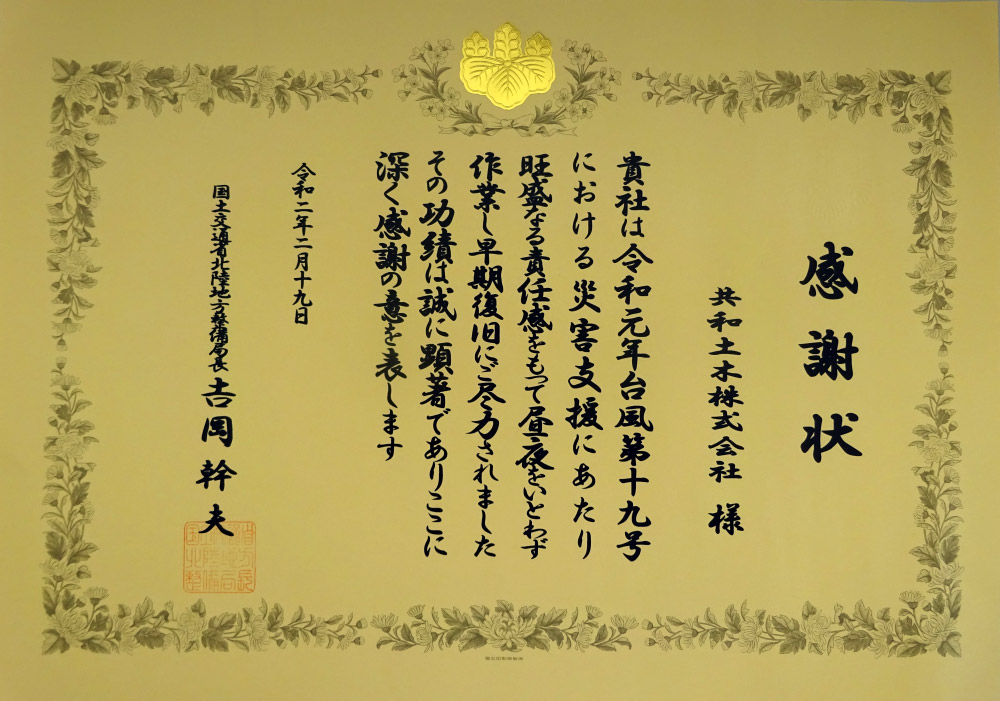 感謝状
共和土木株式会社 様
貴社は令和元年台風第十九号
における災害支援にあたり
旺盛なる責任感をもって昼夜をいとわず
作業し早期復旧にご尽力されました
その功績は誠に顕著でありここに
深く感謝の意を表します
令和二年二月十九日
国土交通省北陸地方整備局長 吉岡幹夫